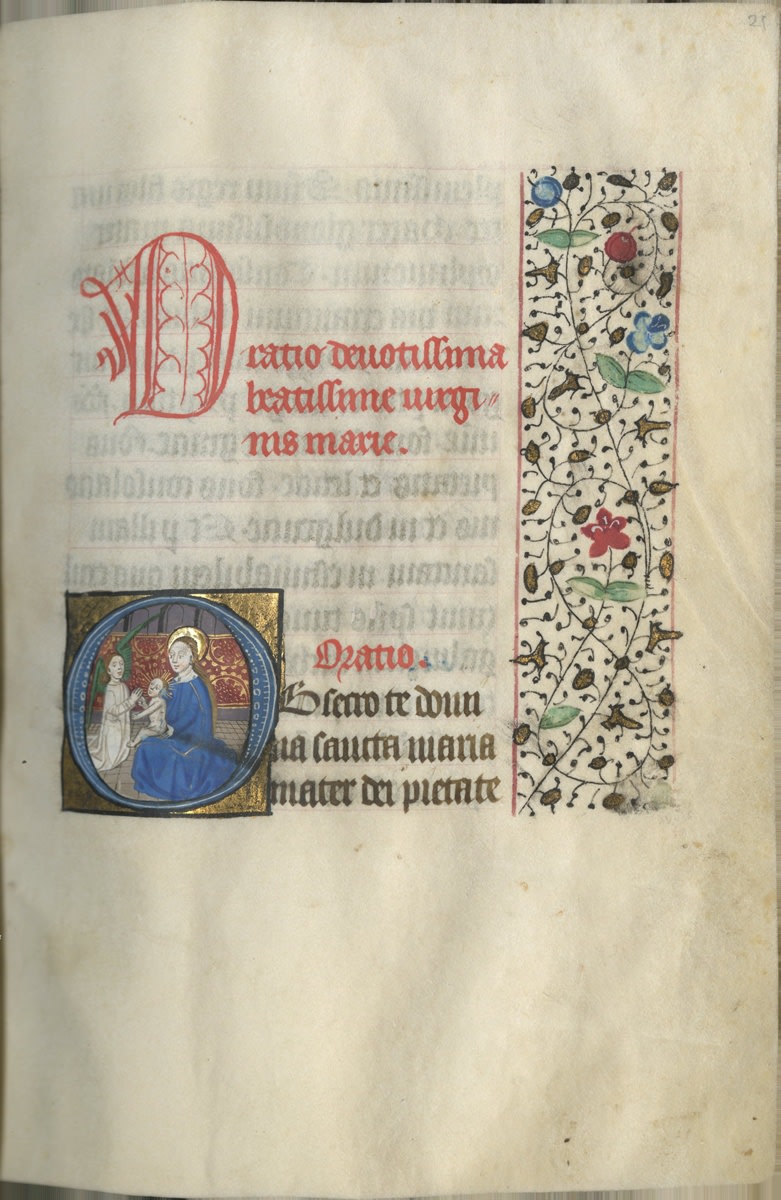 Oratio deuotissima
beatissime uirgi//
nis marie.
Oratio.
OBsecro te domi
na sancta maria
mater dei pietate